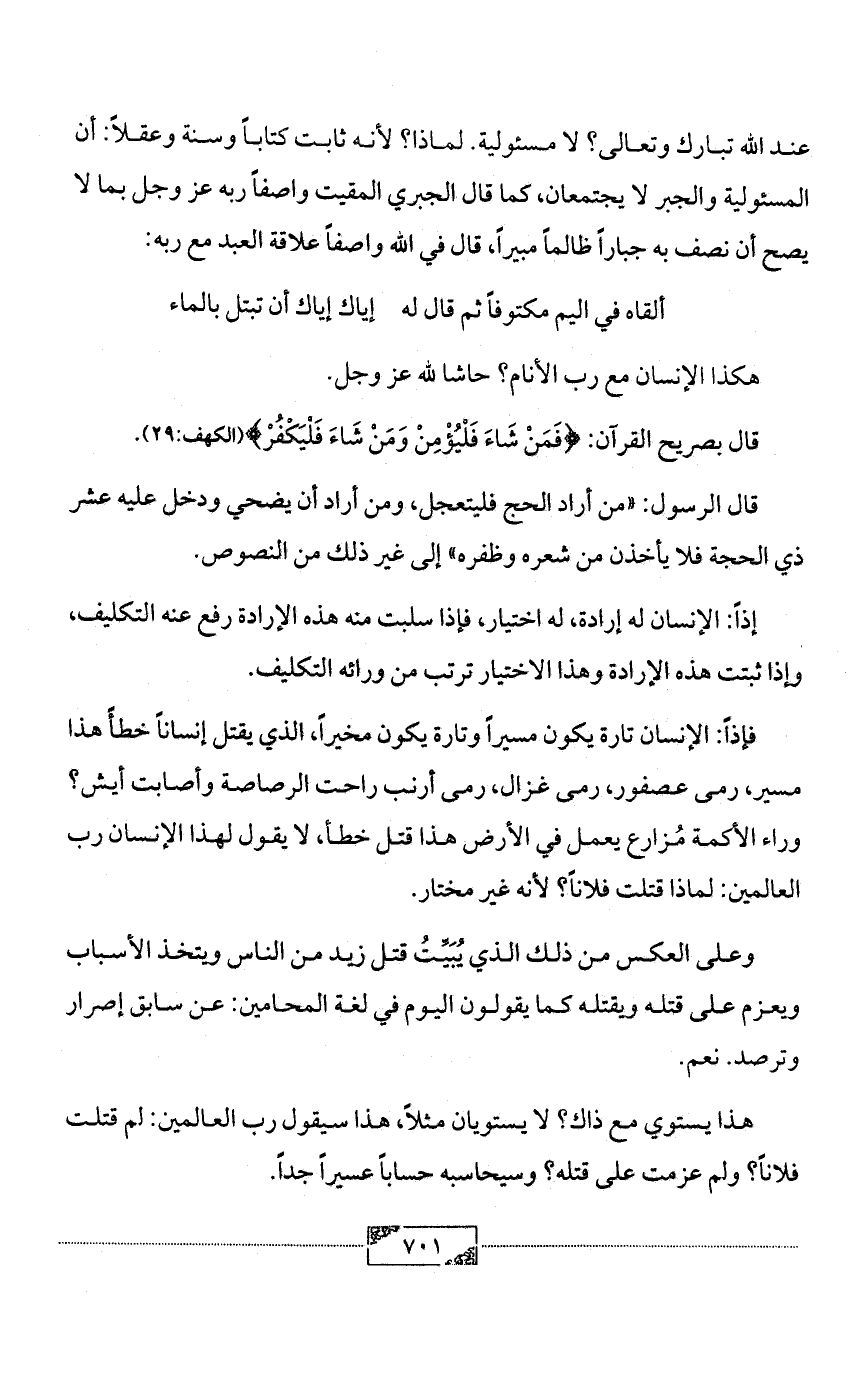 عند الله تبارك وتعالى؟ لا مسئولية. لماذا؟ لأنه ثابت كتاباً وسنة وعقلاً: أن
المسئولية والجبر لا يجتمعان، كما قال الجبري المقيت واصفاً ربه عز وجل بما لا
يصح أن نصف به جباراً ظالماً مبيراً، قال في الله واصفاً علاقة العبد مع ربه:
ألقاه في اليم مكتوفاً ثم قال له    إياك إياك أن تبتل بالماء
هكذا الإنسان مع رب الأنام؟ حاشا لله عز وجل.
قال بصريح القرآن: ﴿فَمَنْ شَاءَ فَلْيُؤْمِنْ وَمَنْ شَاءَ فَلْيَكْفُرْ﴾(الكهف:٢٩).
قال الرسول: «من أراد الحج فليتعجل، ومن أراد أن يضحي ودخل عليه عشر
ذي الحجة فلا يأخذن من شعره وظفره» إلى غير ذلك من النصوص.
إذاً: الإنسان له إرادة، له اختيار، فإذا سلبت منه هذه الإرادة رفع عنه التكليف،
وإذا ثبتت هذه الإرادة وهذا الاختيار ترتب من ورائه التكليف.
فإذاً: الإنسان تارة يكون مسيراً وتارة يكون مخيراً، الذي يقتل إنساناً خطأً هذا
مسير، رمى عصفور، رمى غزال، رمى أرنب راحت الرصاصة وأصابت أيش؟
وراء الأكمة مُزارع يعمل في الأرض هذا قتل خطأ، لا يقول لهذا الإنسان رب
العالمين: لماذا قتلت فلاناً؟ لأنه غير مختار.
وعلى العكس من ذلك الذي يُبَيِّتُ قتل زيد من الناس ويتخذ الأسباب
ويعزم على قتله ويقتله كما يقولون اليوم في لغة المحامين: عن سابق إصرار
وترصد. نعم.
هذا يستوي مع ذاك؟ لا يستويان مثلاً، هذا سيقول رب العالمين: لم قتلت
فلاناً؟ ولم عزمت على قتله؟ وسيحاسبه حساباً عسيراً جداً.
٧٠١